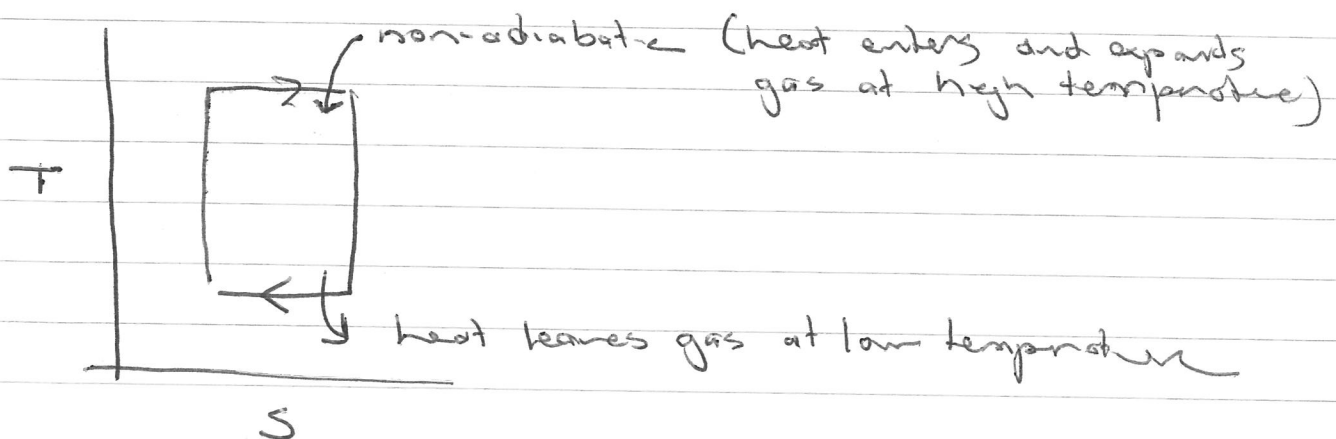 non-adiabatic (heat enters and expands
gas at high temperature)
T
heat leaves gas at low temperature
S